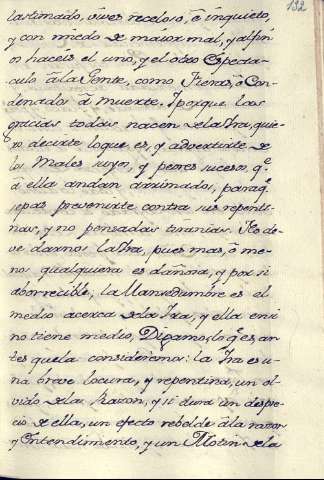 132
lastimado, vives receloso, è inquieto,
y con miedo de maior mal, y al fin
os haceis el uno, y el otro Especta-
culo à la Gente, como Fieras, ò Con-
denados à muerte. Y porque las
gracias todas nacen de la Ira, quie-
ro decirte lo que es, y advertirte de
los Males suyos, y peores sucesos, q.e
à ella andan arrimados, para q.
sepas prevenirte contra sus repenti-
nas, y no pensadas tiranias. No de-
ve darnos la Ira, pues mas, ò me-
no qualquiera es dañosa, y por sí
aborrecible, la Mansedumbre es el
medio acerca de la Ira, y ella en si
no tiene medio, Digamos lo q.e es an-
tes que la consideremos: la Ira es u-
na breve locura, y repentina, un ol-
vido de la Razon, y si dura un despre-
cio de ella, un efecto rebelde à la razon
y Entendimiento, y un Motin de la